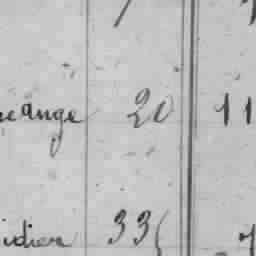 ange 20 11
idier 33